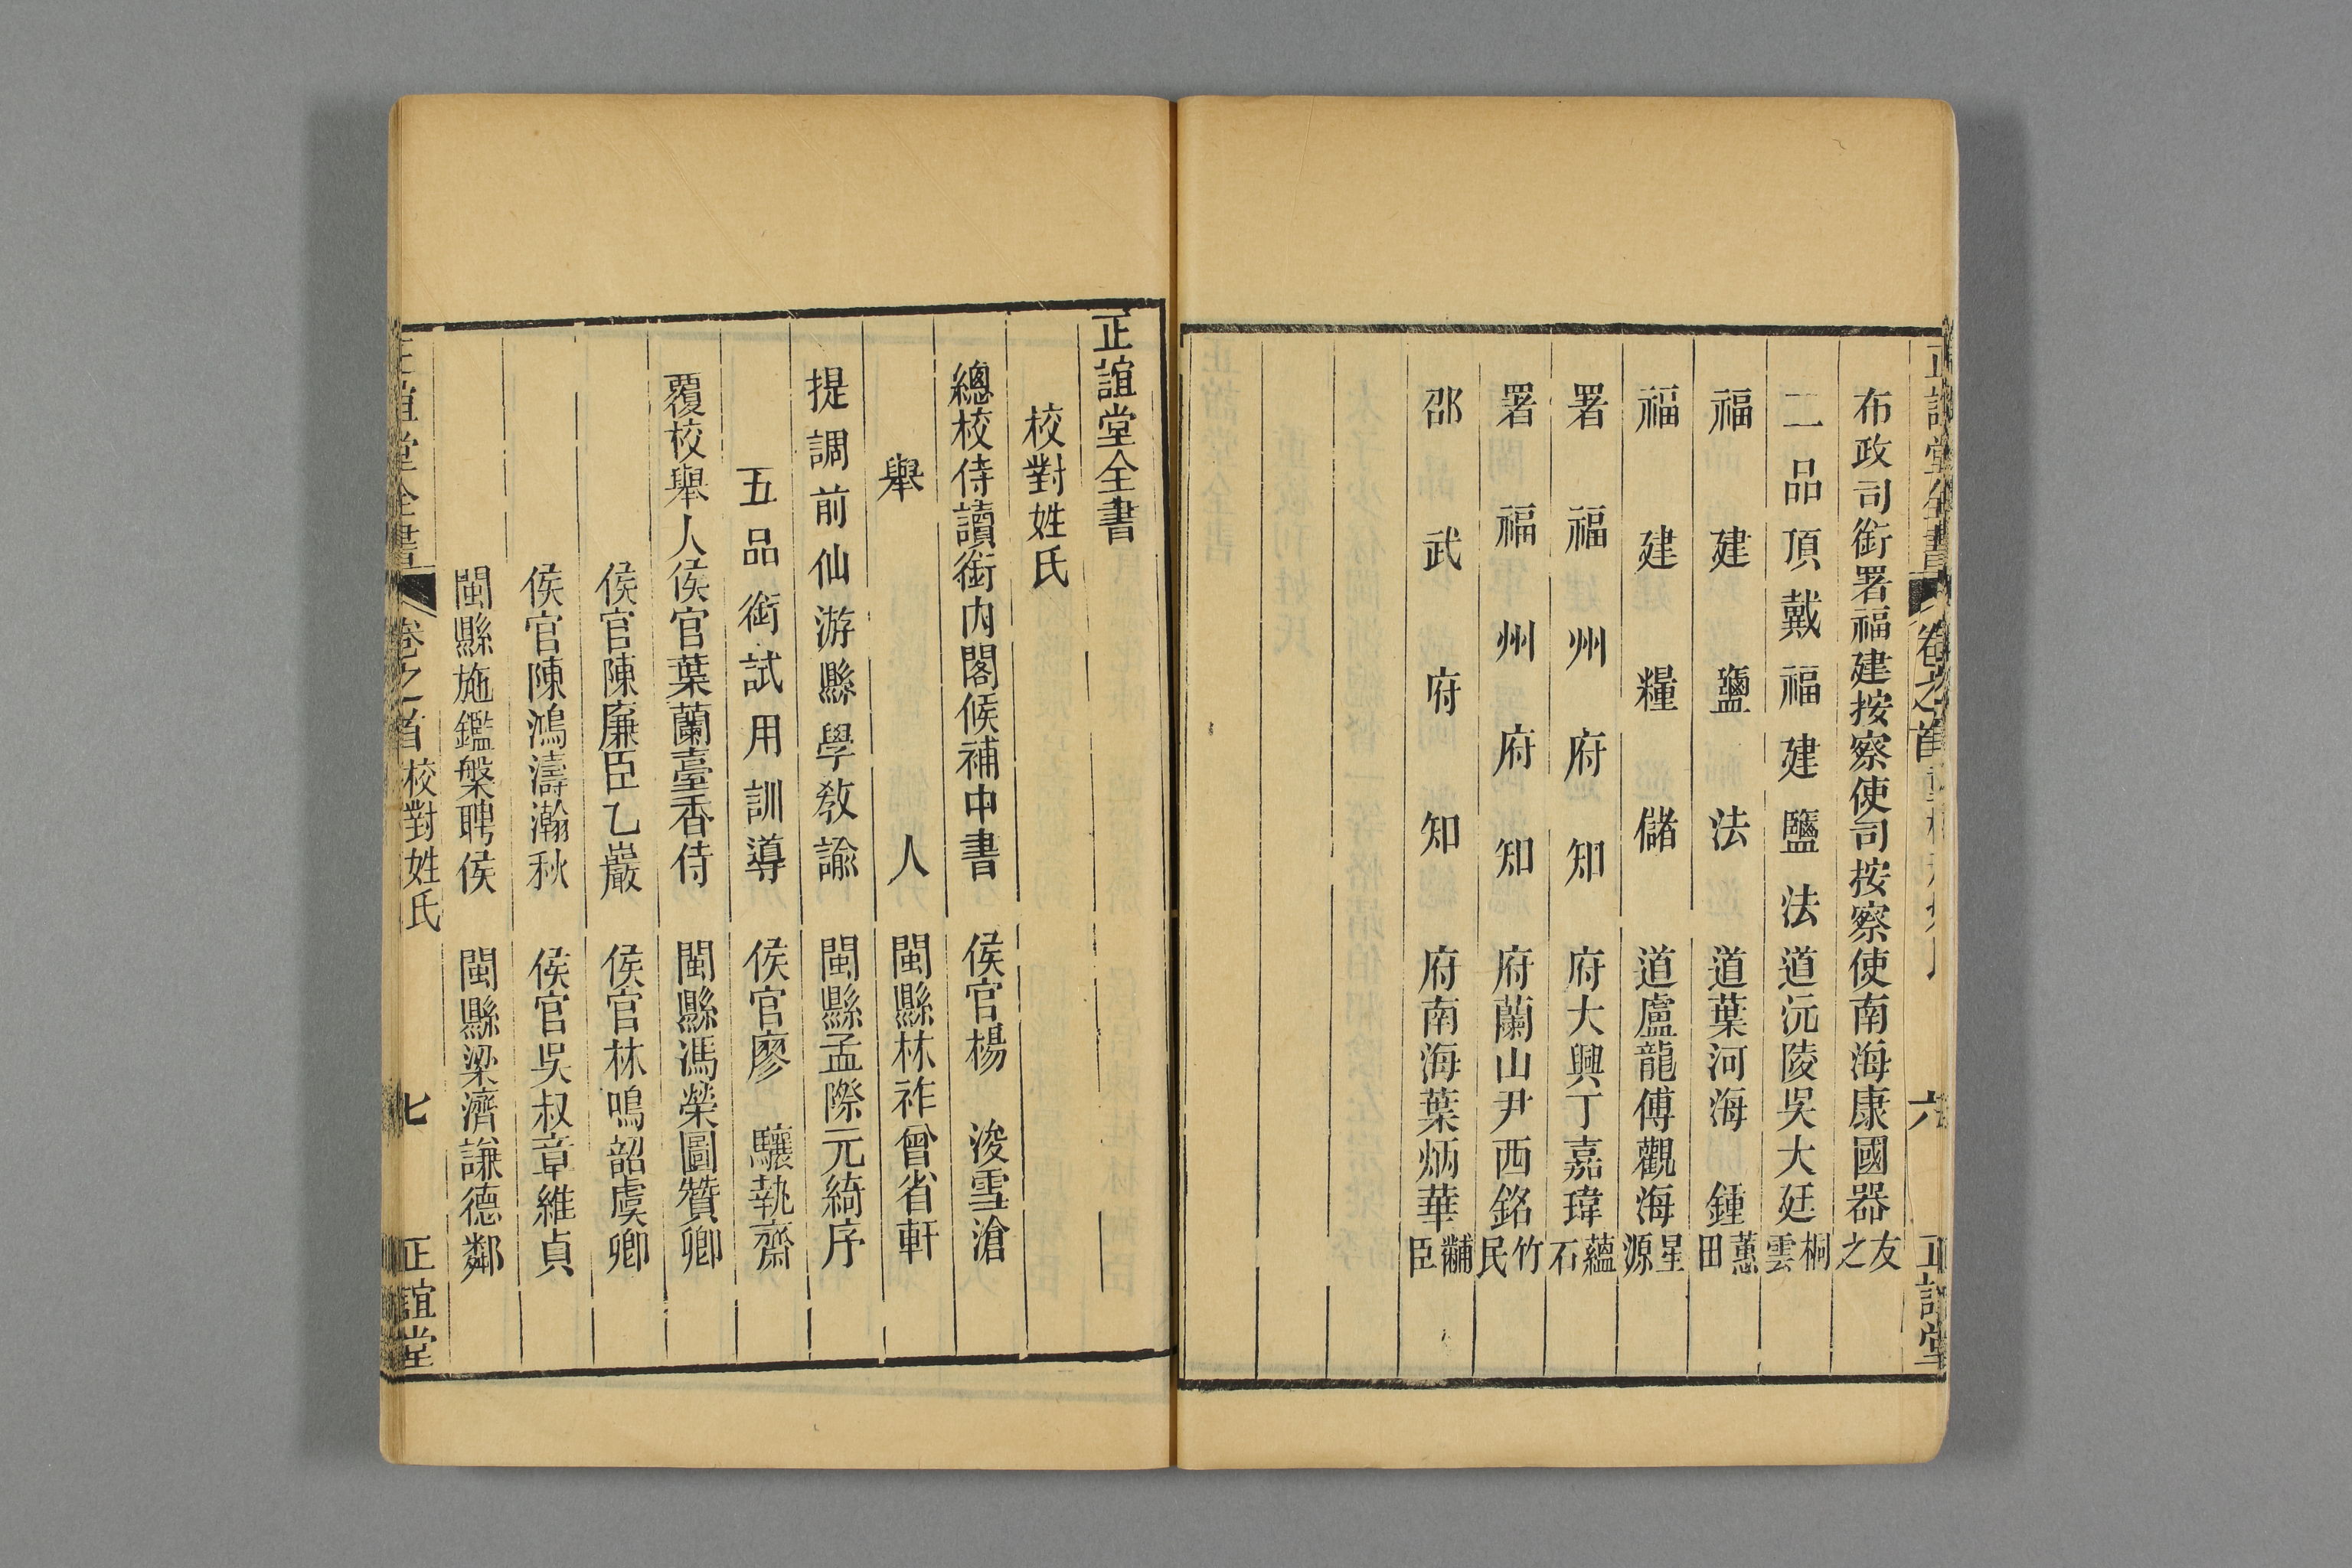 布政司銜署福建按察使司按察使南海康國器友之
二品頂戴福建鹽法道沅陵吳大廷桐雲
福建鹽法道葉河海鍾蕙田
福建糧儲道盧龍傅觀海星源
署福州府知府大興丁嘉瑋蘊石
署福州府知府蘭山尹西銘竹民
邵武府知府南海葉炳華黼臣
正誼堂全書
校對姓氏
總校侍讀銜內閣候補中書 侯官楊 浚雪滄
舉人 閩縣林祚曾省軒
提調前仙游縣學教諭 閩縣孟際元綺序
五品銜試用訓導 侯官廖 驤執齋
覆校舉人侯官葉蘭臺香侍 閩縣馮榮圖贊卿
侯官陳廉臣乙巖 侯官林鳴韶虞卿
侯官陳鴻濤瀚秋 侯官吳叔章維貞
閩縣施鑑槃聘侯 閩縣梁濟謙德鄰
正誼堂全書 卷之首 校對姓氏 七 正誼堂